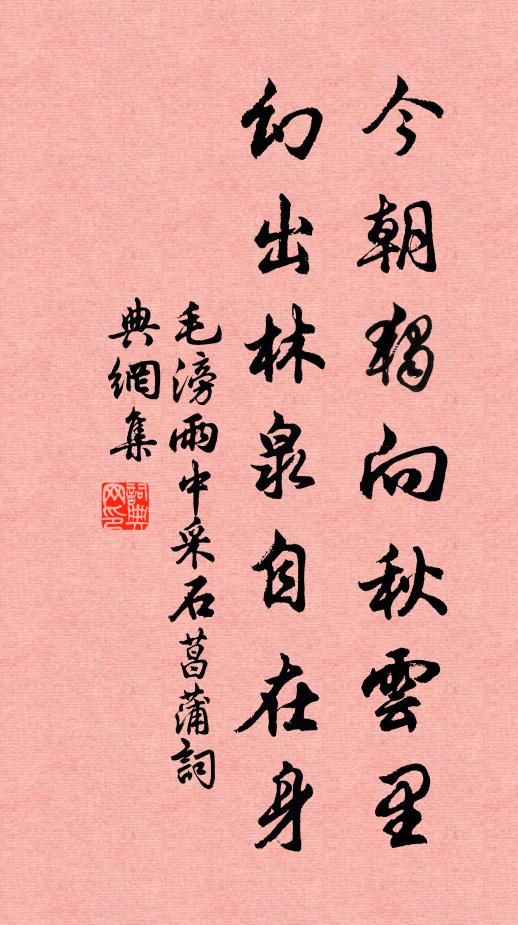 今朝独向秋雲里
幻出林泉自在身
毛滂雨中采石菖蒲詞
典網集
詞典
网印